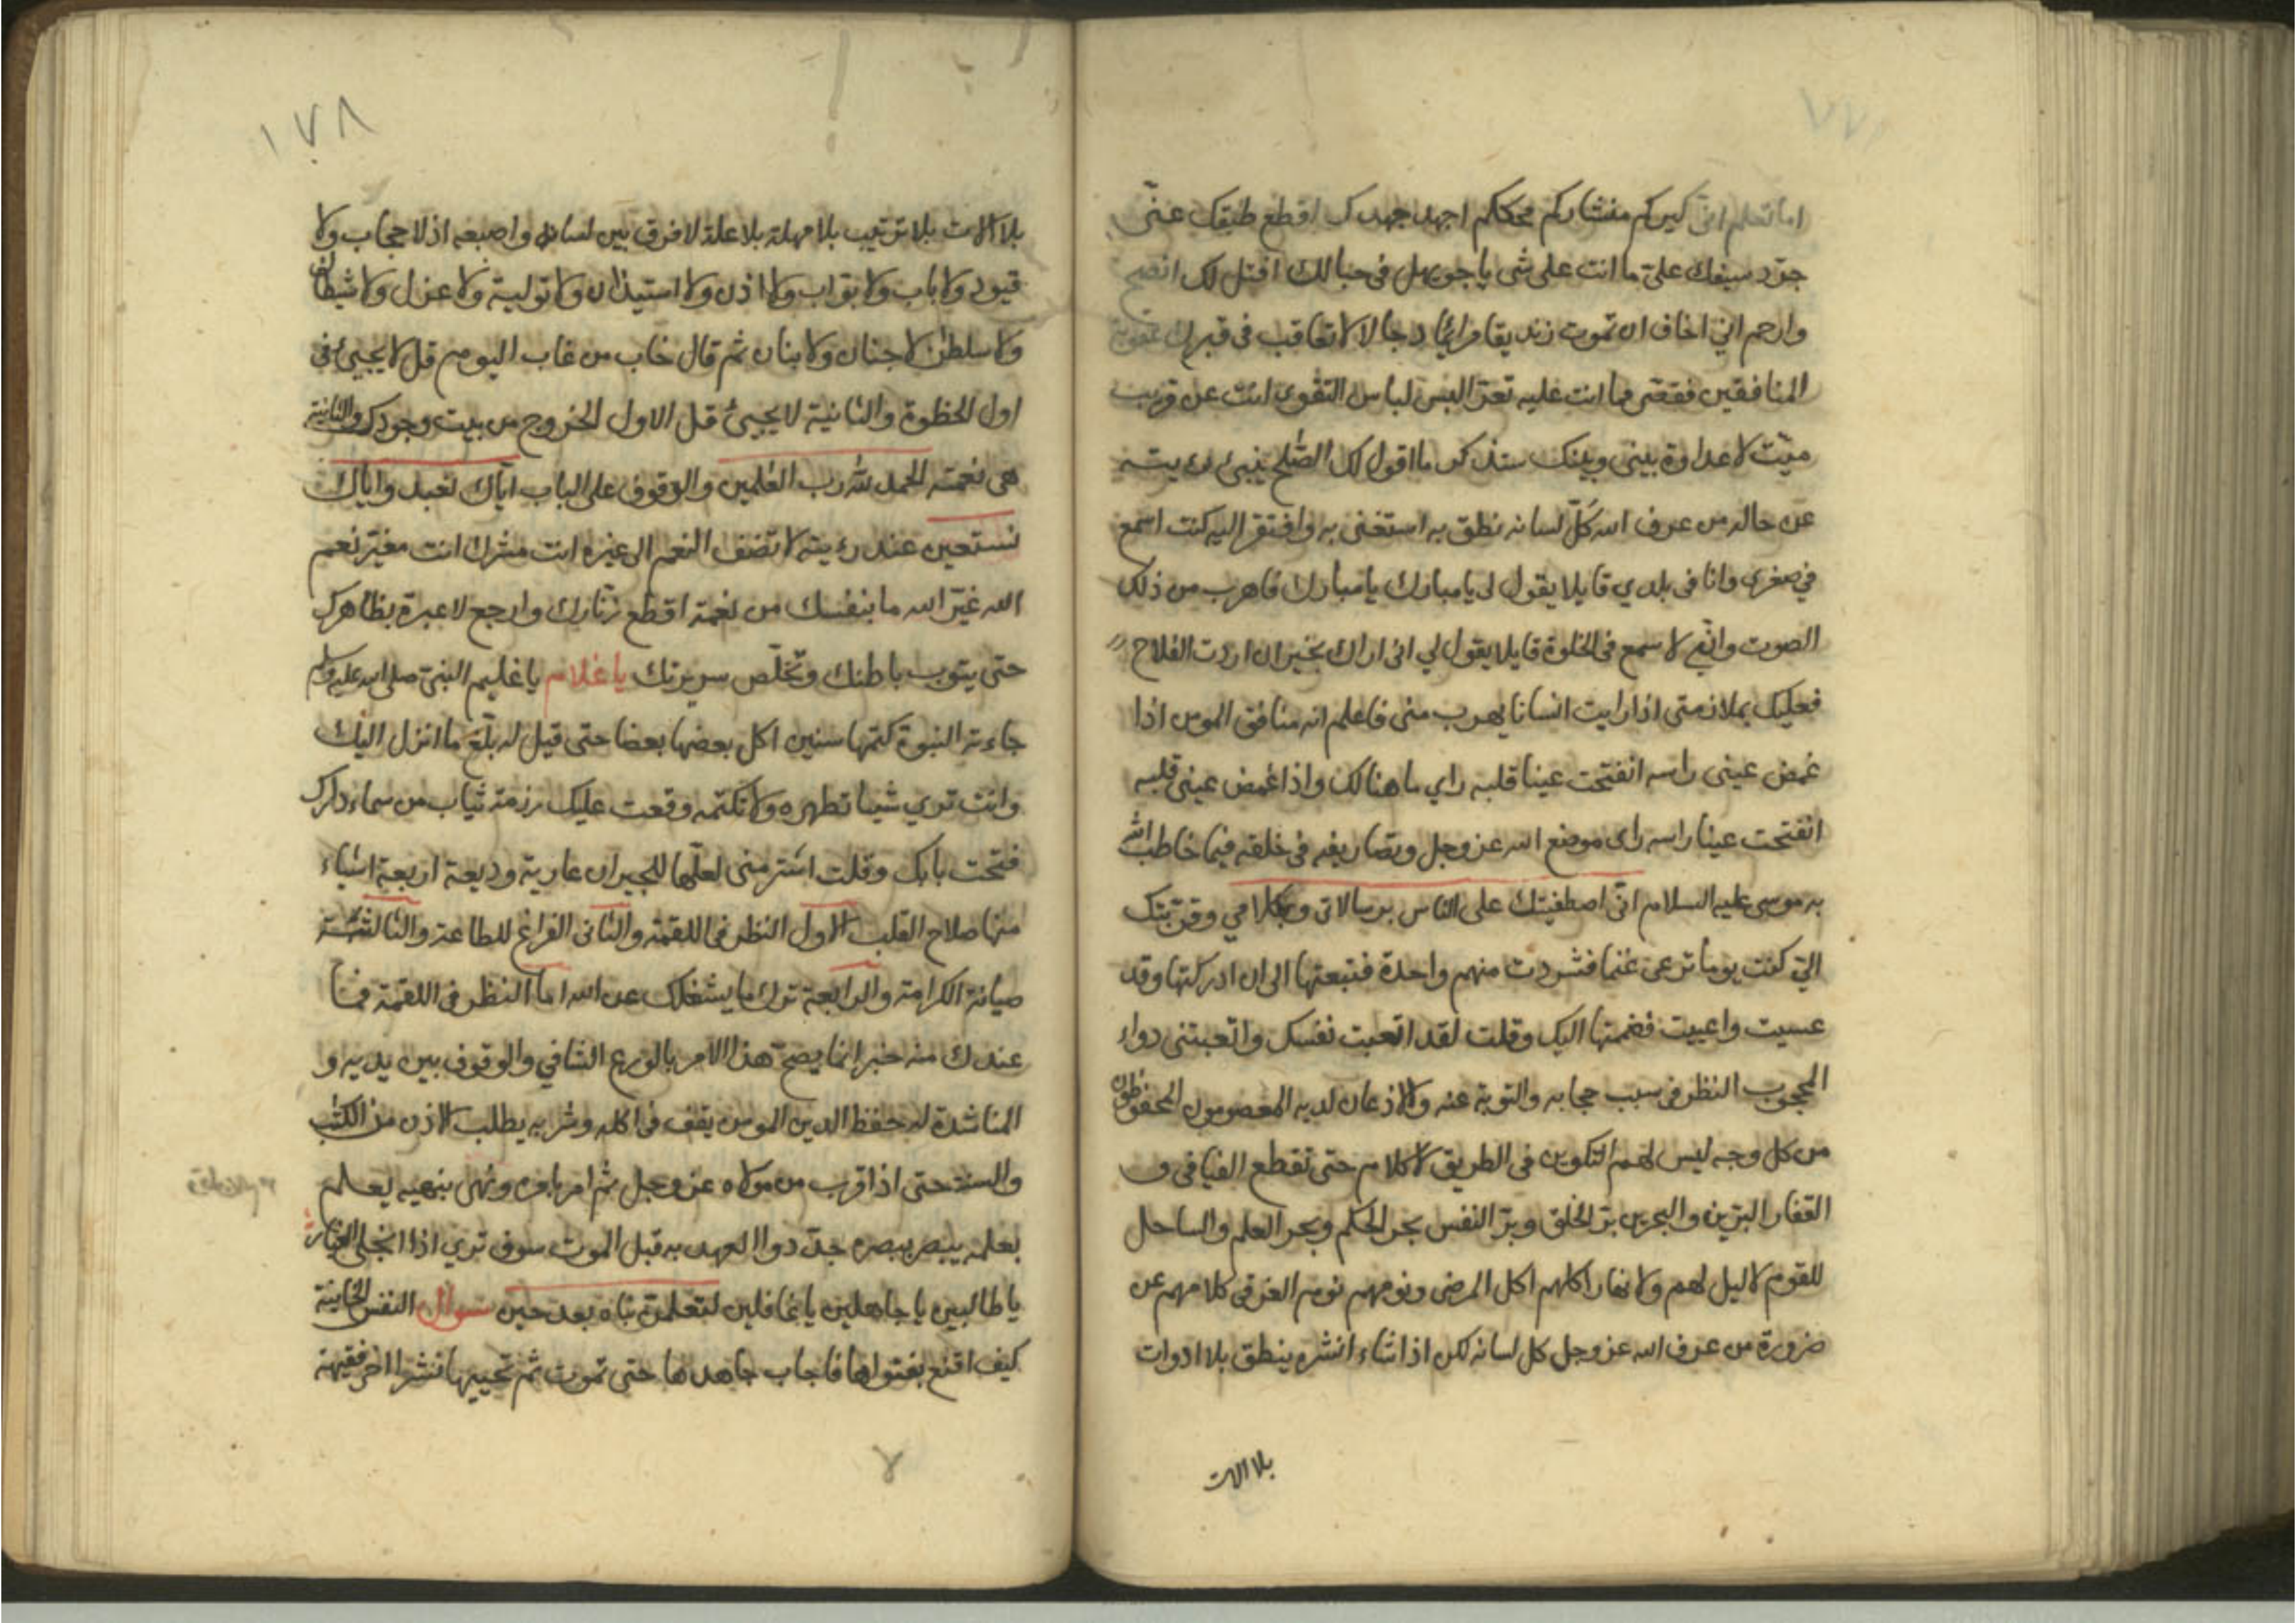 اما تعلم انى كيركم منشاركم محككم اجهد جهدك اقطع طبقك عنى
جرّد سيفك علىّ ما انت على شى يا جويهل فى حبالك افتل لك انصح
وارحم اني اخاف ان تموت زنديقا مرائيا دجالا لا تعاقب فى قبرك عقوبة
المنافقين فقعتى مما انت عليه تعرّ البس لباس التقوى انت عن قريب
ميّت لا عداوة بينى وبينك ستذكر ما اقول لك الصّلح ينبئ رؤيته
عن حاله من عرف الله كلّ لسانه نطق به استغنى به وافتقر اليه كنت اسمع
في صغرى وانا فى بلدي قايلا يقول لى يا مبارك يا مبارك فاهرب من ذلك
الصوت وانى لاسمع فى الخلوة قايلا يقول لي انى اراك بخير ان اردت الفلاح
فعليك بملازمتى اذا رايت انسانا يهرب منى فاعلم انه منافق المومن اذا
غمض عينى راسه انفتحت عينا قلبه راي ما هنالك واذا غمض عينى قلبه
انفتحت عينا راسه راى موضع الله عز وجل وتصاريفه فى خلقه فيما خاطب الله
به موسى عليه السلام انى اصطفيتك على الناس برسالاتى وبكلامي وقرّبتك
الىّ كنت يوما ترعى غنما فشردت منهم واحدة فتبعتها الى ان ادركتها وقد
عسيت واعييت فضمتها اليك وقلت لقد اتعبت نفسك واتعبتنى دواء
المحجوب النظر فى سبب حجابه والتوبة عنه والاذعان لديه المعصومون المحفوظون
من كل وجه ليس لهم التكوين فى الطريق لا كلام حتى تقطع الفيافى و
القفار البرّين والبحرين برّ الخلق وبرّ النفس بحر الحكم وبحر العلم والساحل
للقوم لا ليل لهم ولا نهار اكلهم اكل المرضى ونومهم نوم الغرقى كلامهم عن
ضرورة من عرف الله عز وجل كل لسانه لكن اذا شاء انشره ينطق بلا ادوات
بلا الات
١٧٨
بلا آلات بلا ترتيب بلا مهلة بلا علة لا فرق بين لسانه واصبعه اذ لا حجاب ولا
قيود ولا باب ولا بوّاب ولا اذن ولا استيذان ولا تولية ولا عزل ولا شيطان
ولا سلطن لا جنان ولا بنان ثم قال خاب من غاب اليوم قل لا يجيئ فى
اول الخطوة والثانية لا يجيئ قل الاول الخروج من بيت وجودك والثانية
هى نعمته الحمد لله رب العلمين والوقوف على الباب اياك نعبد واياك
نستعين عند رؤيته لا تضف النعم الى غيره انت مشرك انت مغيّر نعم
الله غيّر الله ما بنفسك من نعمة اقطع زنّارك وارجع لا عبرة بظاهرك
حتى يتوب باطنك وتخلّص سريرتك يا غلام يا غليم النبىّ صلى الله عليه وسلم
جاءته النبوة كتمها سنين اكل بعضها بعضا حتى قيل له بلّغ ما انزل اليك
وانت تري شيئا تظهره ولا تكتمه وقعت عليك رزمة ثياب من سماء دارك
فتحت بابك وقلت اشتر منى لعلّها للجيران عارية وديعة اربعة اشياء
منها صلاح القلب الاول النظر فى اللقمة والثانى الفراغ للطاعة والثالثة
صيانة الكرامة والرابعة ترك ما يشغلك عن الله اما النظر فى اللقمة فما
عندك منه خبر انما يصحّ هذا الامر بالورع الشافي والوقوف بين يديه و
المناشدة له حفظ الدين المومن يقف فى اكله وشربه يطلب الاذن من الكتب
والسنة حتى اذا قرب من مولاه عز وجل ثم امر بامره ونهى بنهيه يعلم
بعلمه يبصر ببصره جدّدوا العهد به قبل الموت سوف تري اذا انجلى الغبار
يا طالبين يا جاهلين يا غافلين لتعلمن نباه بعد حين سوال النفس الخاينة
كيف اقنع بفتواها فاجاب جاهدها حتى تموت ثم تحييها نشرا اخر فقيهة